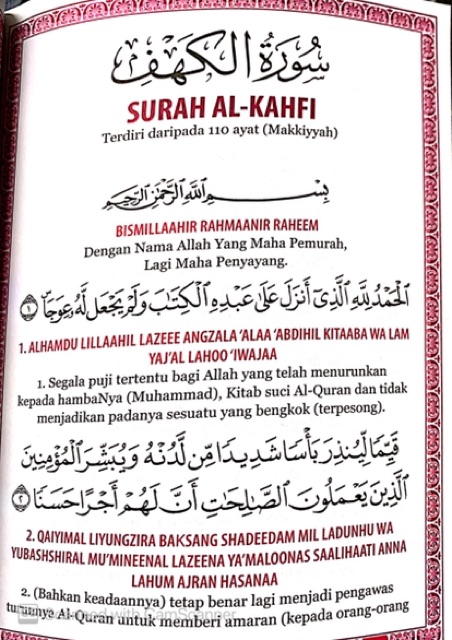 سُورَةُ الْكَهْفِ
SURAH AL-KAHFI
Terdiri daripada 110 ayat (Makkiyyah)
بِسْمِ اللَّهِ الرَّحْمَٰنِ الرَّحِيمِ
BISMILLAAHIR RAHMAANIR RAHEEM
Dengan Nama Allah Yang Maha Pemurah,
Lagi Maha Penyayang.
الْحَمْدُ لِلَّهِ الَّذِي أَنْزَلَ عَلَىٰ عَبْدِهِ الْكِتَابَ وَلَمْ يَجْعَلْ لَهُ عِوَجًا ١
1. ALHAMDU LILLAAHIL LAZEEE ANGZALA ‘ALAA ‘ABDIHIL KITAABA WA LAM
YAJ’AL LAHOO ‘IWAJAA
1. Segala puji tertentu bagi Allah yang telah menurunkan
kepada hambaNya (Muhammad), Kitab suci Al-Quran dan tidak
menjadikan padanya sesuatu yang bengkok (terpesong).
قَيِّمًا لِيُنْذِرَ بَأْسًا شَدِيدًا مِنْ لَدُنْهُ وَيُبَشِّرَ الْمُؤْمِنِينَ
الَّذِينَ يَعْمَلُونَ الصَّالِحَاتِ أَنَّ لَهُمْ أَجْرًا حَسَنًا ٢
2. QAIYIMAL LIYUNGZIRA BAKSANG SHADEEDAM MIL LADUNHU WA
YUBASHSHIRAL MU’MINEENAL LAZEENA YA’MALOONAS SAALIHAATI ANNA
LAHUM AJRAN HASANAA
2. (Bahkan keadaannya) tetap benar lagi menjadi pengawas
turunnya Al-Quran untuk memberi amaran (kepada orang-orang
Scanned with CamScanner